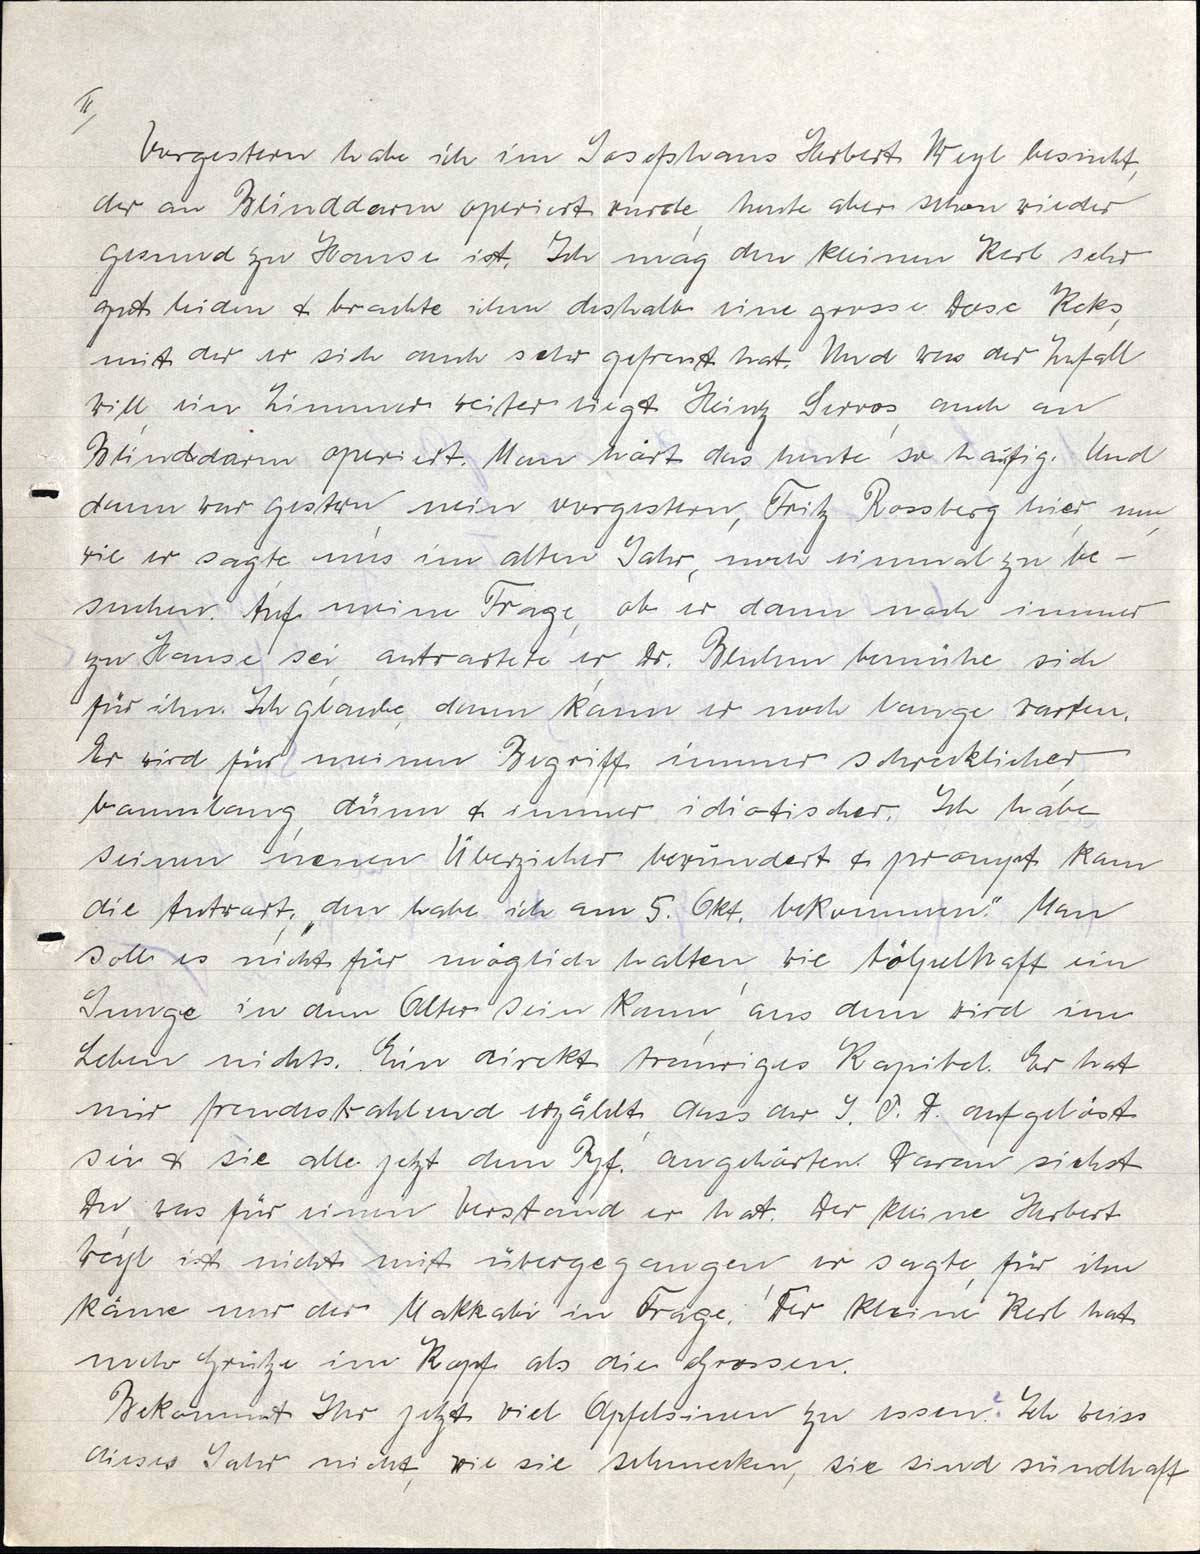 II,
Vorgestern habe ich im Josefshaus Herbert Weyl besucht,
der an Blinddarm operiert wurde, heute aber schon wieder
gesund zu Hause ist. Ich mag den kleinen Kerl sehr
gut leiden & brachte ihm deshalb eine grosse Dose Keks,
mit der er sich auch sehr gefreut hat. Und was der Zufall
will, ein Zimmer weiter liegt Heinz Servos, auch an
Blinddarm operiert. Man hört das heute so häufig. Und
dann war gestern, nein vorgestern, Fritz Rossberg hier, um,
wie er sagte uns im alten Jahr, noch einmal zu be-
suchen. Auf meine Frage, ob er dann noch immer
zu Hause sei, antwortete er, Dr. Bluhm bemühe sich
für ihn. Ich glaube, dann kann er noch lange warten.
Er wird für meinen Begriff immer schrecklicher,
baumlang, dünn & immer idiotischer. Ich habe
seinen neuen Überzieher bewundert & prompt kam
die Antwort, „den habe ich am 5. Okt. bekommen." Man
soll es nicht für möglich halten, wie tölpelhaft ein
Junge in dem Alter sein kann, aus dem wird im
Leben nichts. Ein direkt trauriges Kapitel. Er hat
mir freudestrahlend erzählt, dass der J. P. D. aufgelöst
sei & sie alle jetzt dem Bzf. angehörten. Daran siehst
Du, was für einen Verstand er hat. Der kleine Herbert
Weyl ist nicht mit übergegangen, er sagte, für ihn
käme nur der Makkabi in Frage. Der kleine Kerl hat
mehr Grütze im Kopf als die Grossen.
Bekommt Ihr jetzt viel Apfelsinen zu essen? Ich weiss
dieses Jahr nicht, wie sie schmecken, sie sind sündhaft